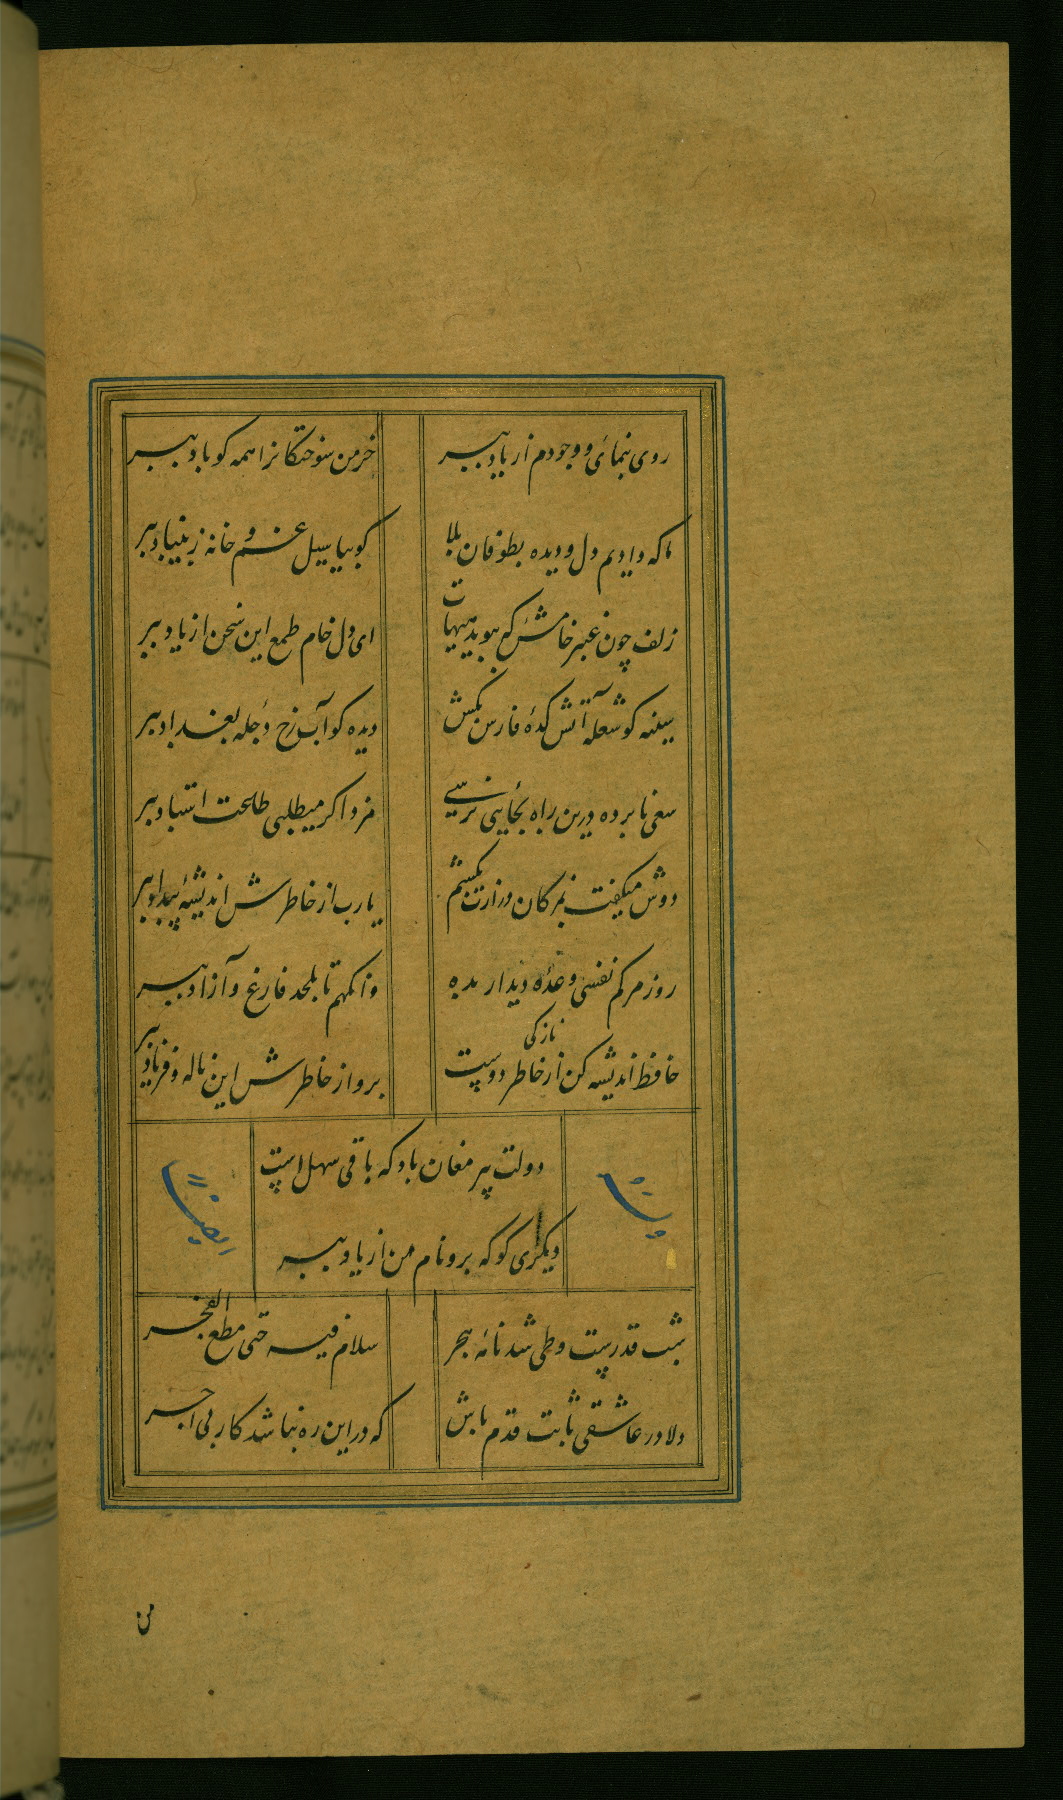 روی بنمای و وجودم از یاد ببر خرمن سوختگانرا همه کو باد ببر
ما که دادیم دل و دیده بطوفان بلا کو بیا سیل غم و خانه ز بنیاد ببر
زلف چون عنبر خامش که ببوید هیهات ای دل خام طمع این سخن از یاد ببر
سینه کو شعله آتش کدهٔ فارس بکش دیده کو آب رخ دجله بغداد ببر
سعی نابرده درین راه بجایی نرسی مزد اگر میطلبی طاعت استاد ببر
دوش میگفت بمژگان درازت بکشم یارب از خاطرش اندیشهٔ بیداد ببر
روز مرگم نفسی وعدهٔ دیدار بده وانگهم تا بلحد فارغ و آزاد ببر
حافظ اندیشه کن از نازکی خاطر دوست برو از خاطرش این ناله و فریاد ببر
دولت پیر مغان باد که باقی سهل است
دیگری کو که برو نام من از یاد ببر
وله ایضا
شب قدرست و طی شد نامهٔ هجر سلام فیه حتی مطلع الفجر
دلا در عاشقی ثابت قدم باش که در این ره نباشد کار بی اجر
من